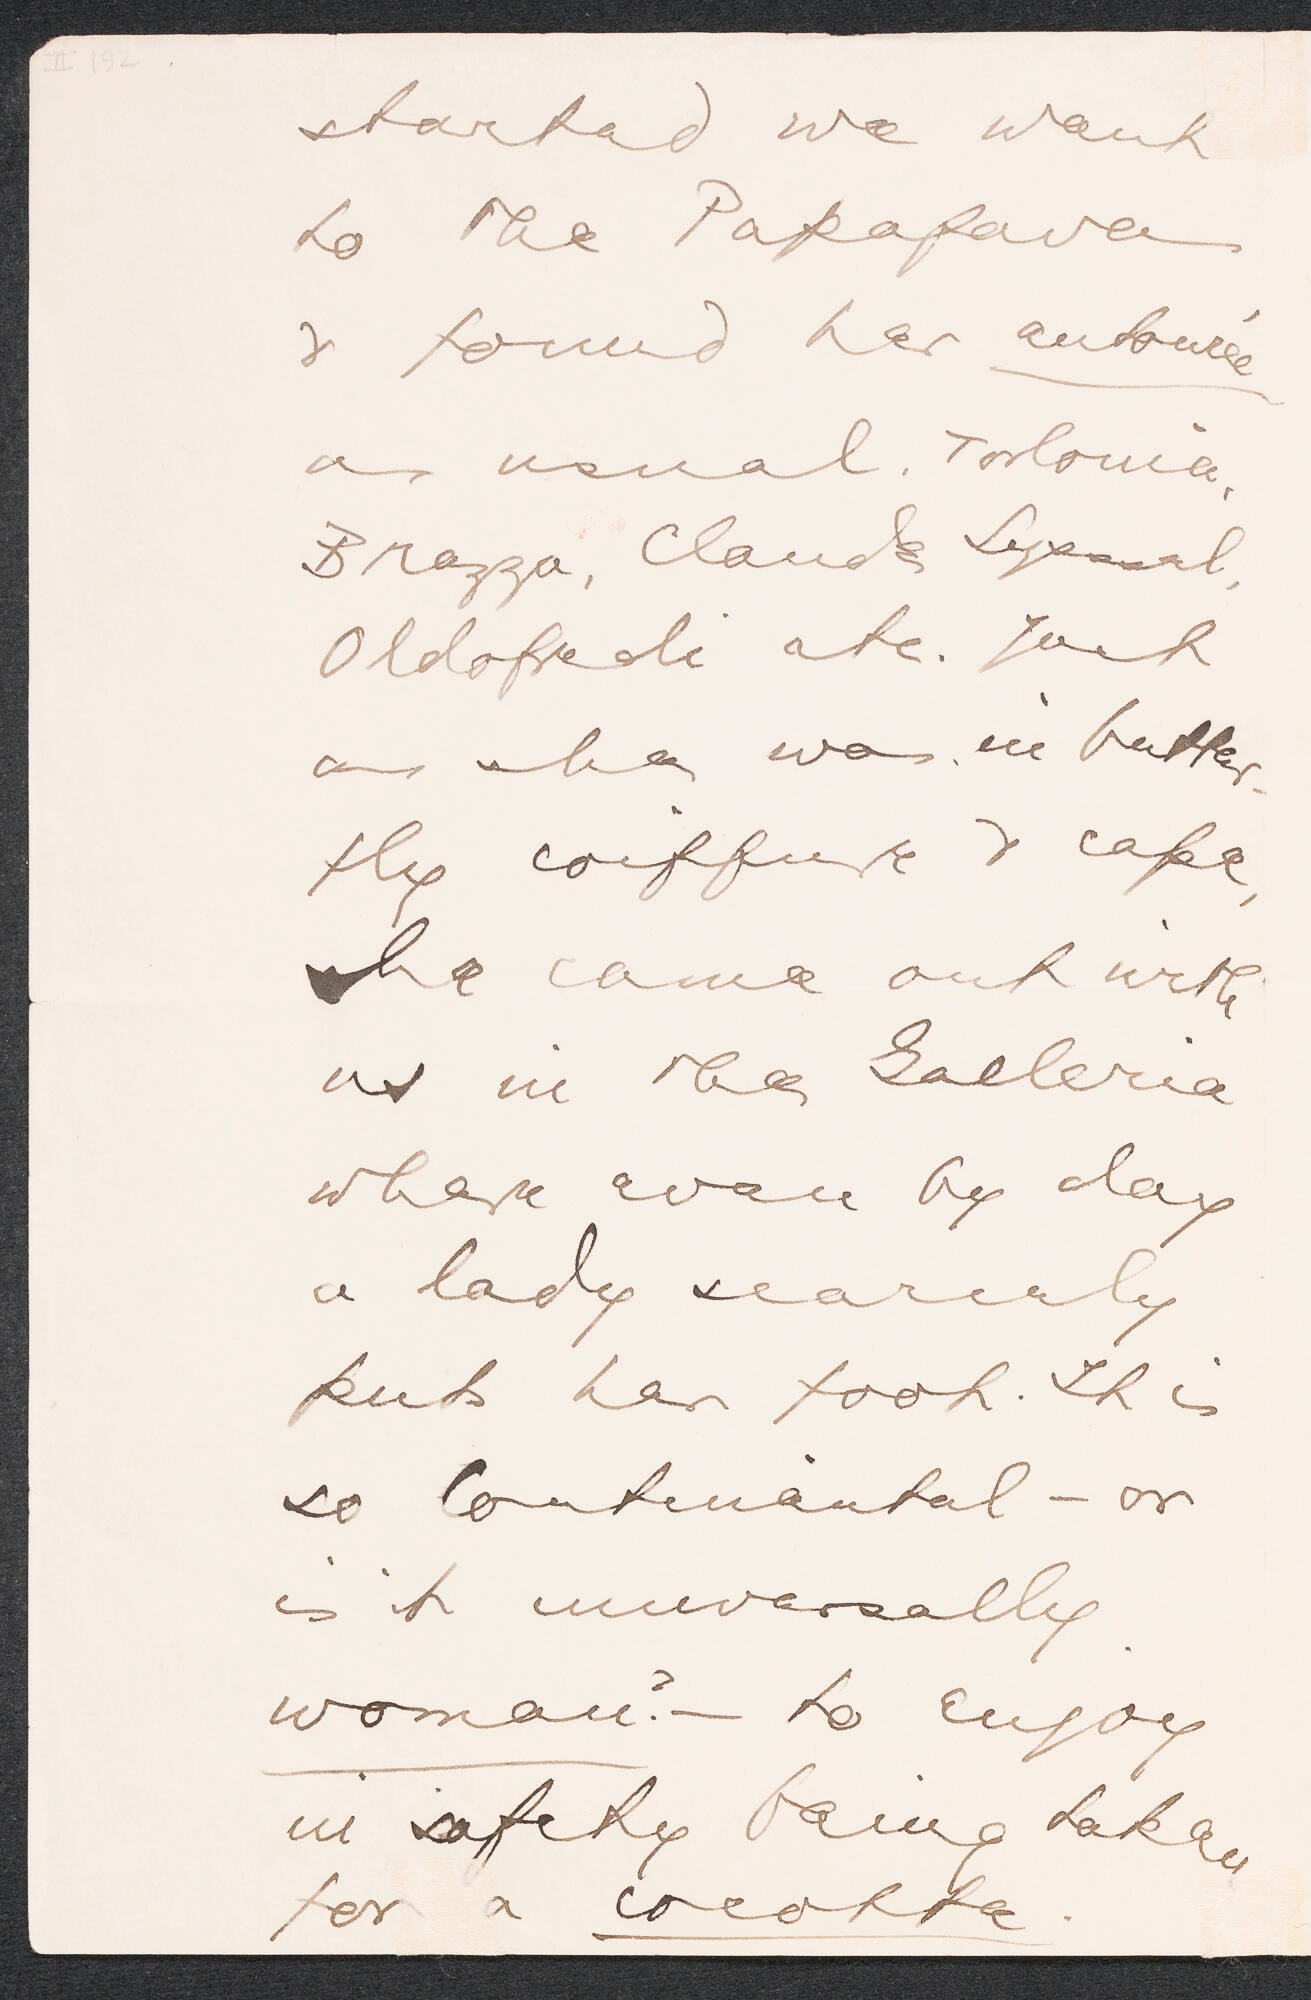 II 192
started we went
to the Papafavas
& found her entourée
as usual. Torlonia,
Brazza, Claude
Oldofredi etc. Just
as she was in butter-
fly coiffure & cape,
she came out with
us in the Galleria
where even by day
a lady scarcely
puts her foot. It is
so Continental – or
is it universally
woman? – to enjoy
in safety being taken
for a cocotte.